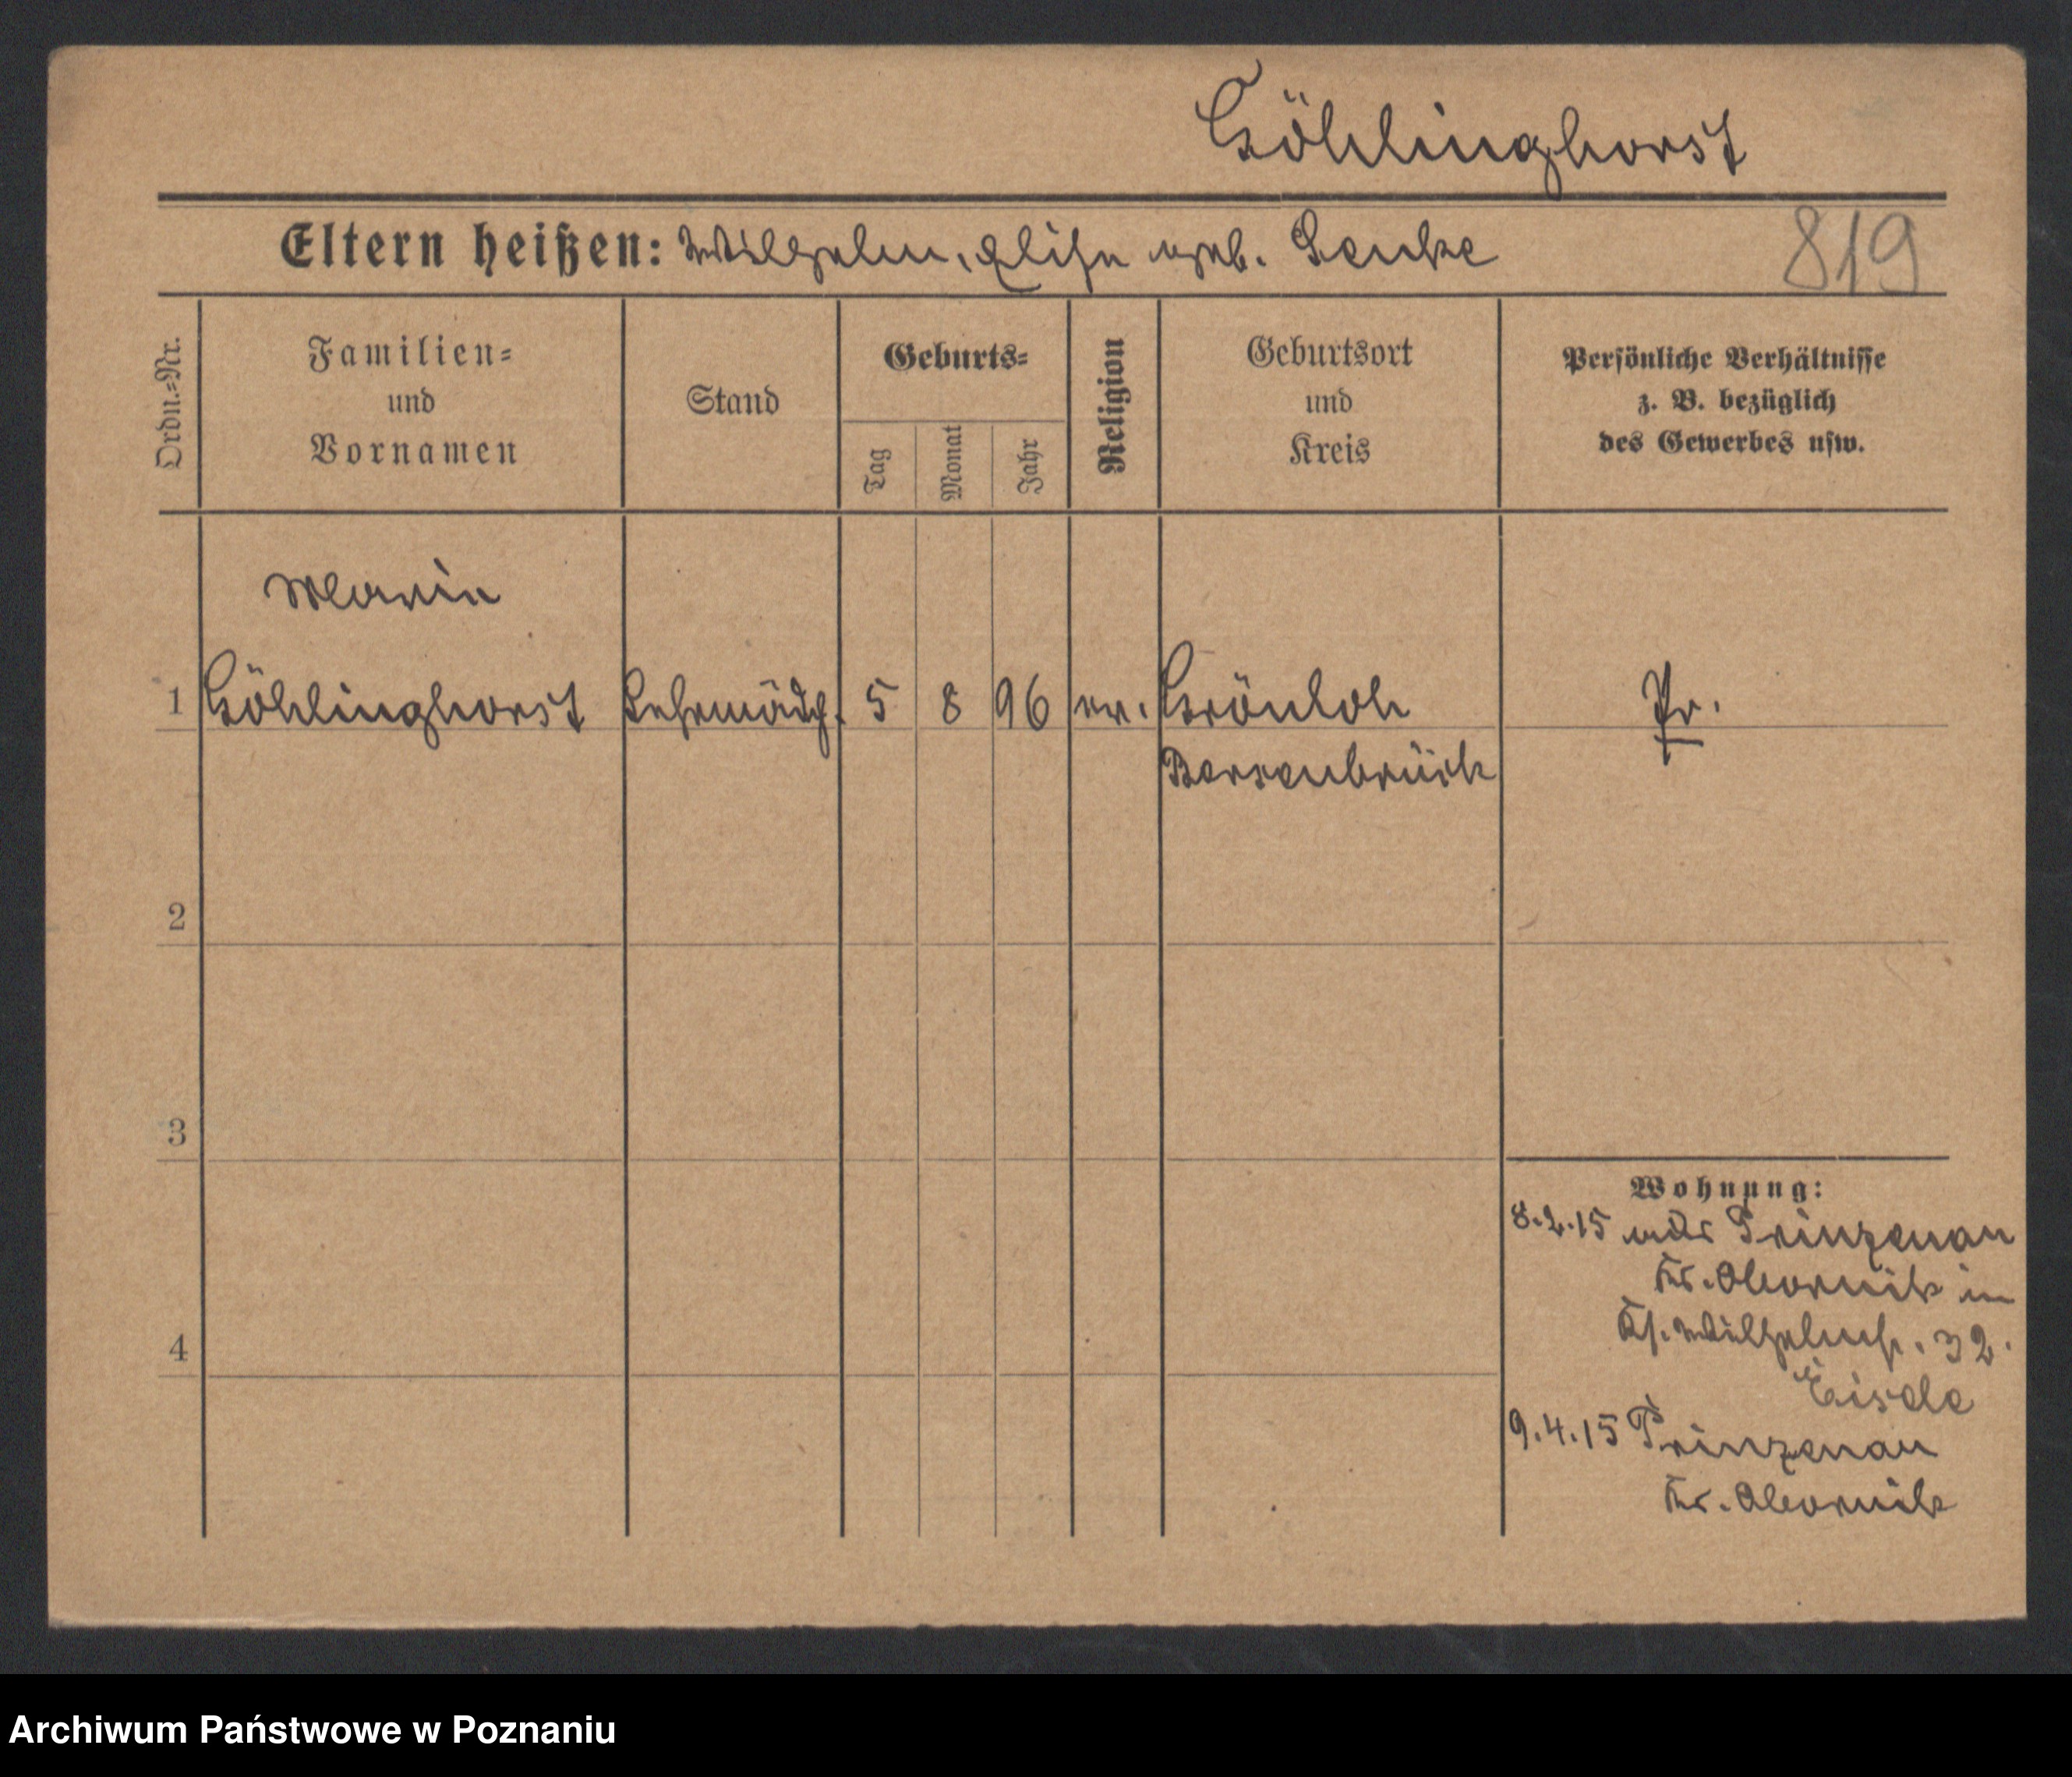 Göhlinghorst
Eltern heißen: Wilhelm, Elise geb. Henke
819
Ordn.=Nr.
Familien=
und
Vornamen
Stand
Geburts=
Tag
Monat
Jahr
Religion
Geburtsort
und
Kreis
Persönliche Verhältnisse
z. B. bezüglich
des Gewerbes usw.
Marie
1 Göhlinghorst Lehrmädch. 5 8 96 ev. Grönloh Pr.
Bersenbrück
2
3
4
Wohnung:
8.2.15 aus Prinzenau
Kr. Obornik in
Ks. Wilhelmst. 32.
9.4.15 Prinzenau
Kr. Obornik
Archiwum Państwowe w Poznaniu